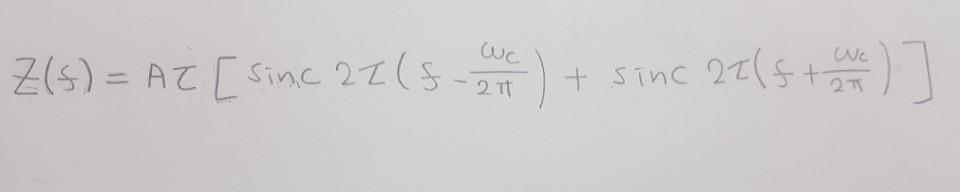 Z(f) = Aτ [ sinc 2τ(f - ωc/2π) + sinc 2τ(f + ωc/2π) ]